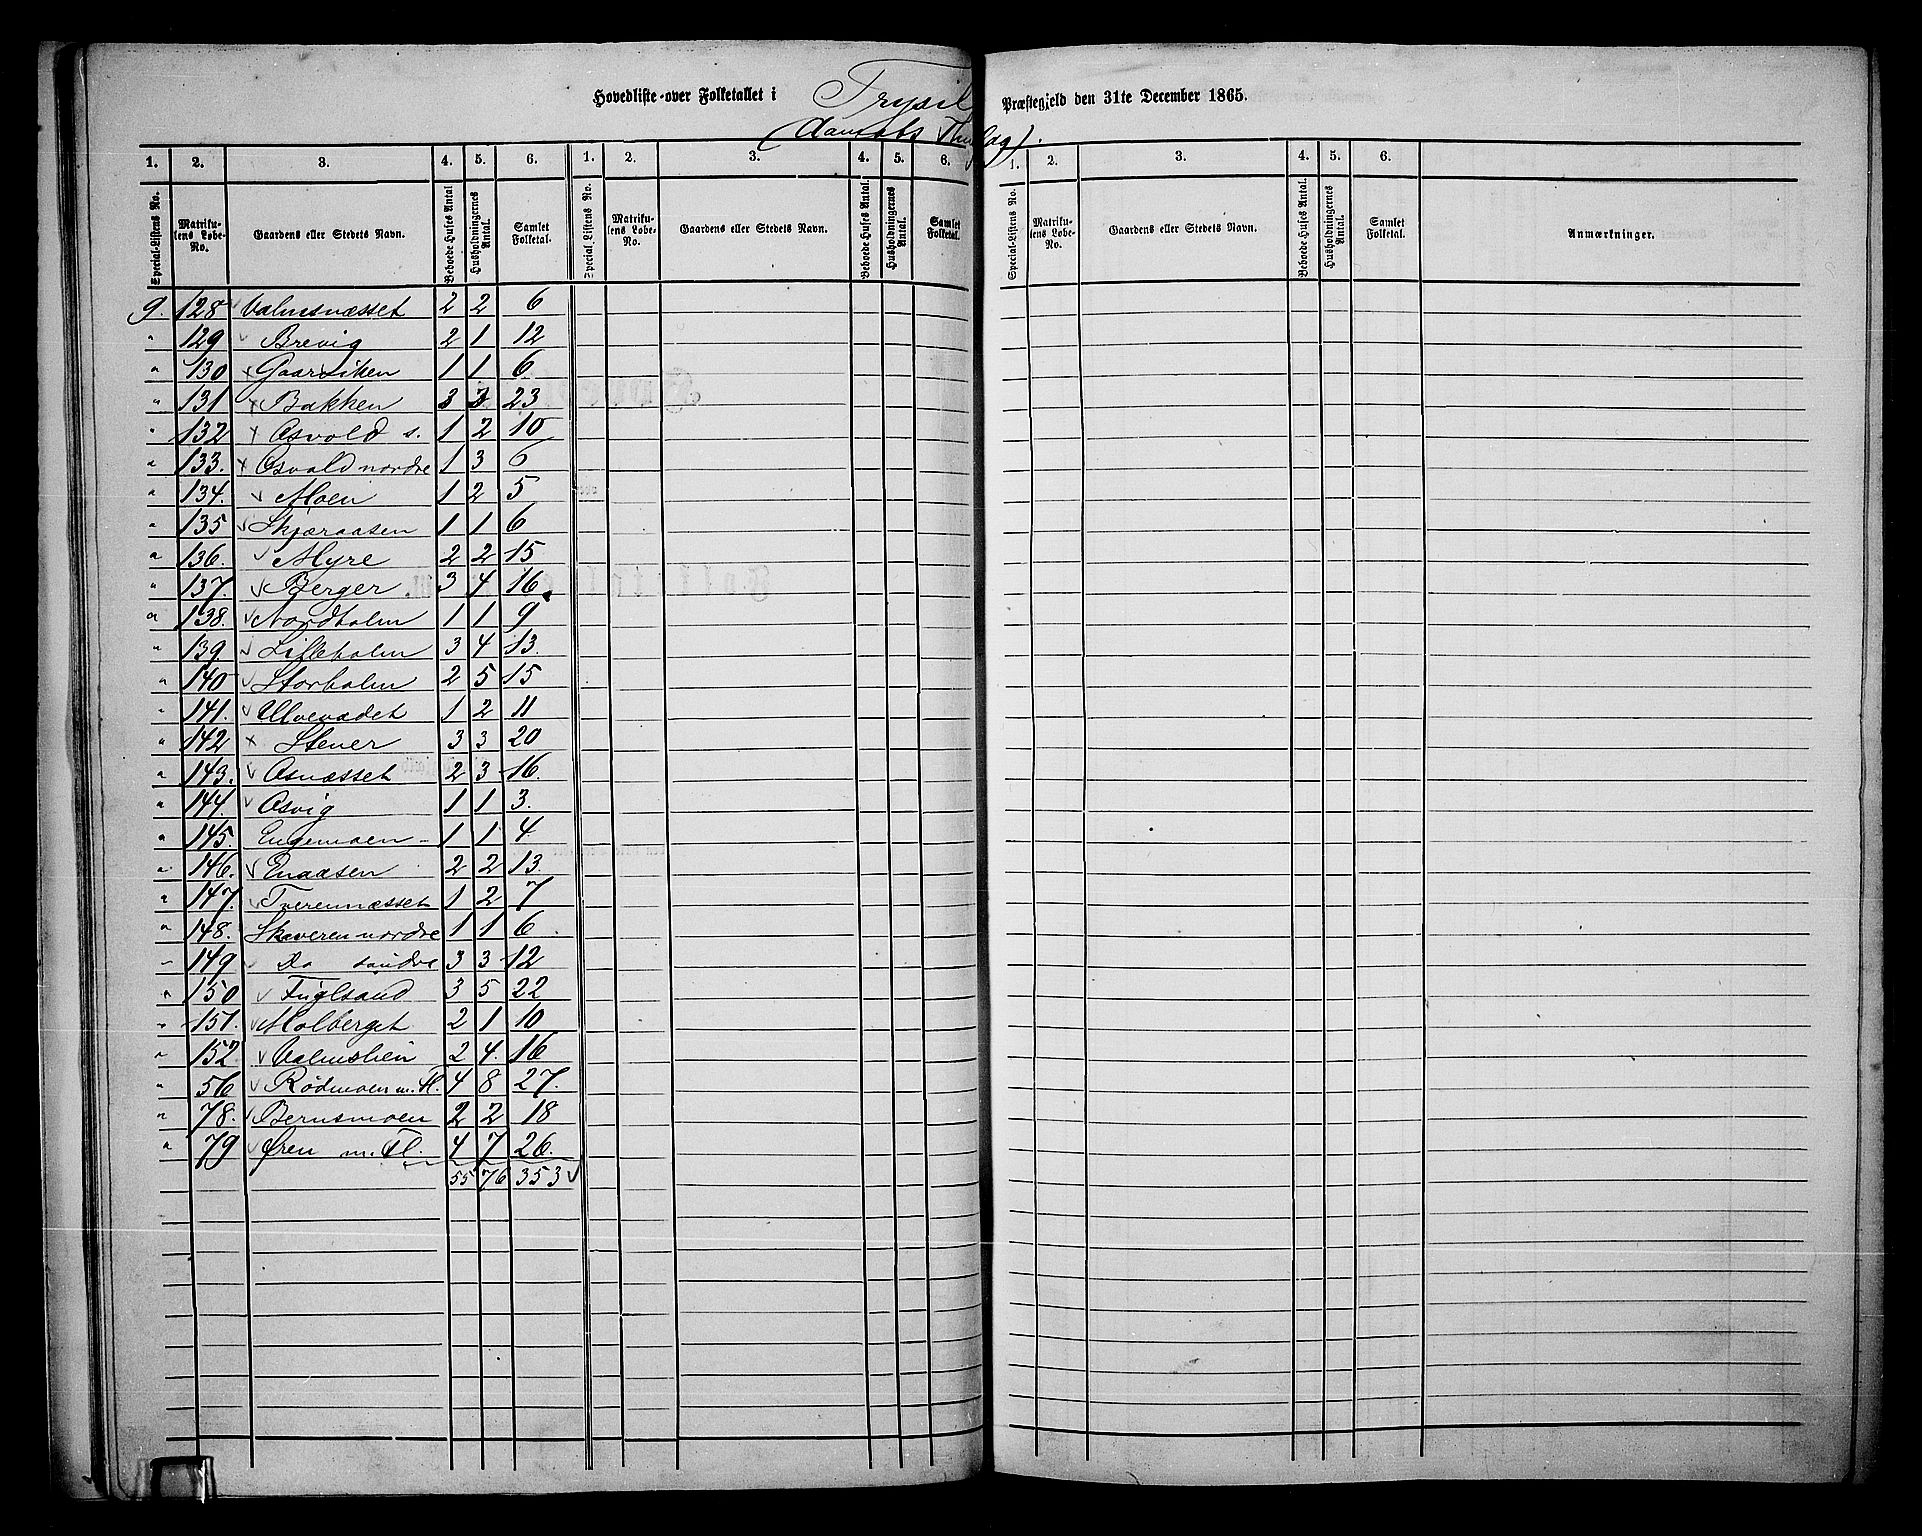 Hovedliste over Folketallet i Trysil Præstegjeld den 31te December 1865.
(Aamots Thinglag).
1. 2. 3. 4. 5. 6. 1. 2. 3. 4. 5. 6. 1. 2. 3. 4. 5. 6.
Special-Listens No. Matrikulens Løbe-No. Gaardens eller Stedets Navn. Beboede Huses Antal Husholdningernes Antal. Samlet Folketal. Special-Listens No. Matrikulens Løbe-No. Gaardens eller Stedets Navn. Beboede Huses Antal. Husholdningernes Antal. Samlet Folketal. Special-Listens No. Matrikulens Løbe-No. Gaardens eller Stedets Navn. Beboede Huses Antal. Husholdningernes Antal. Samlet Folketal. Anmærkninger.
9. 128 Valmsnæsset 2 2 6
" 129 Brevig 2 1 12
" 130 Gaardliken 1 1 6
" 131 Bakken 3 3 23
" 132 Osvold s. 1 2 10
" 133. Osvald nordre 1 3 6
" 134. Moen 1 2 5
" 135 Skjæraasen 1 1 6
" 136. Myre 2 2 15
" 137. Berger 3 4 16
" 138. Nordholm 1 1 9
" 139. Lilleholm 3 4 13.
" 140 Storholm 2 5 15
" 141. Ulvevadet 1 2 11
" 142 Stener 3 3 20
" 143. Osnæsset 2 3 16.
" 144. Osvig 1 1 3.
" 145. Engemoen 1 1 4.
" 146. Enaasen 2 2 13.
" 147. Tverennæsset 1 2 7
" 148. Skæveren nordre 1 1 6
" 149 Do søndre 3 3 12
" 150 Fuglsand 3 5 22
" 151. Molberget 2 1 10
" 152. Valmslien 2 4. 16
" 56 Rødmoen m. Fl. 4 8 27.
" 78. Bernsmoen 2 2 18
" 79 Øren m. Fl. 4 7 26.
55 76 353